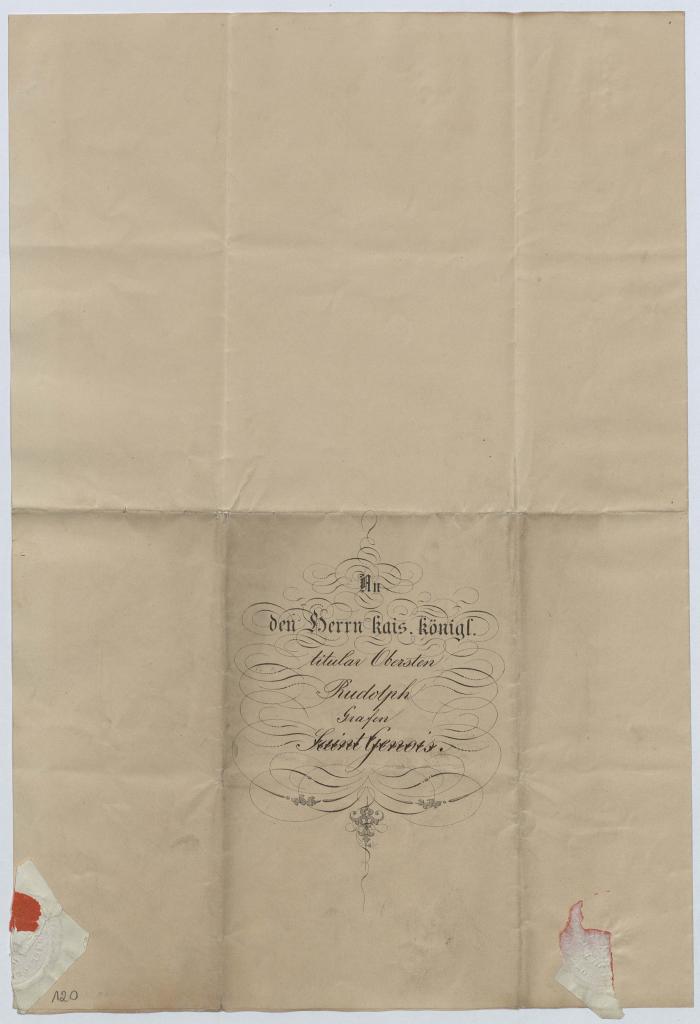 An
den Herrn kais. königl.
titular Obersten
Rudolph
Grafen
Saint Genois.
120